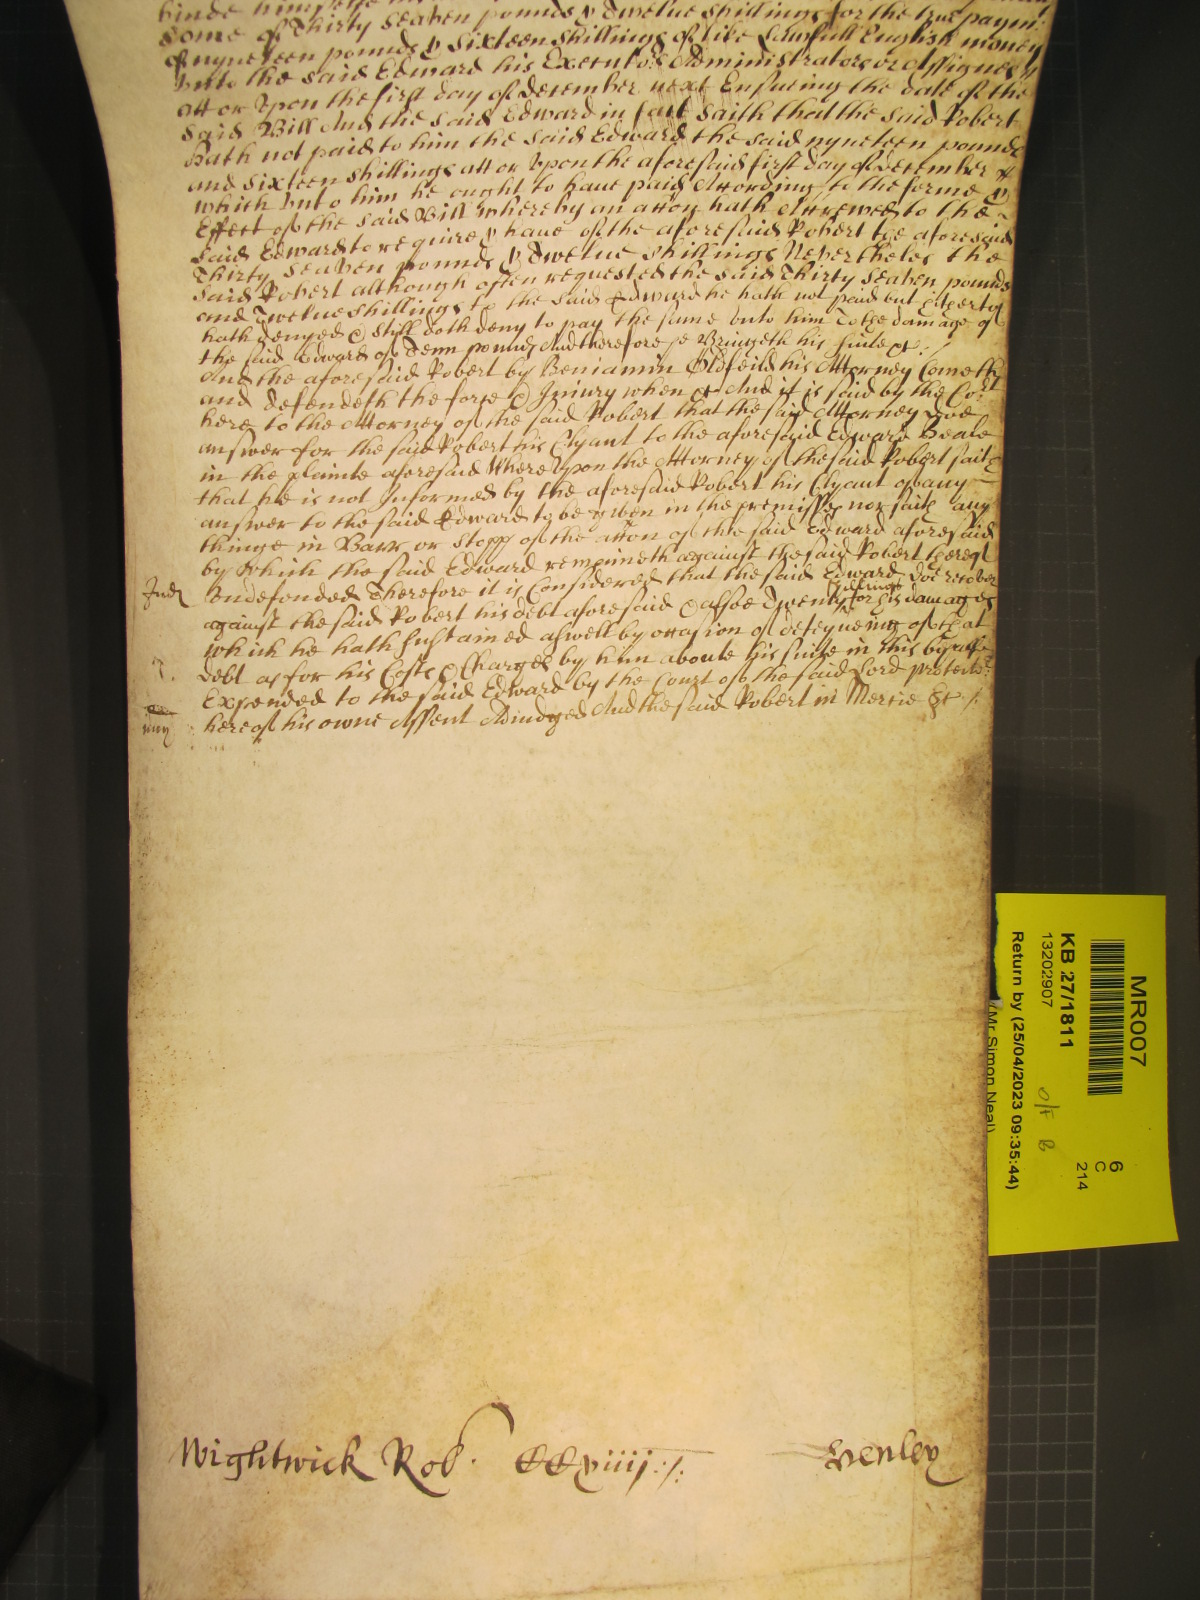 binde himselfe
some of Thirty Seaven pounds & Twelue Shillings for the true paymt
of nyneteen pounds & Sixteen Shillings of like Lawfull English money
vnto the said Edward his Executors Administrators or Assignes
att or Vpon the first day of December next Ensueing the date of the
said Bill And the said Edward in fact saith that the said Robert
Hath not paid to him the said Edward the said nyneteen pounds
and Sixteen Shillings att or Vpon the aforesaid first day of December
which vnto him he ought to haue paid According to the forme &
Effect of the said Bill Whereby an accon hath Accrewed to the
said Edward to require & haue of the aforesaid Robert the aforesaid
Thirty Seaven pounds & Twelue Shillings Neverthelés the
said Robert although often requested the said Thirty Seaven pounds
and Twelue Shillings to the said Edward he hath not paid but
hath denyed & still doth deny to pay the same vnto him To the damage of
the said Edward of Tenn pounds And therefore he Bringeth his Suite &c:/
And the aforesaid Robert by Beniamin Oldfeild his Attorney Cometh
and defendeth the force & Iniury when &c And it is said by the Cort
here to the Attorney of the said Robert that the said Attorney doe
answer for the said Robert his Clyant to the aforesaid Edward Beale
in the plainte aforesaid Wherevpon the Attorney of the said Robert saith
that he is not Informed by the aforesaid Robert his Clyant of any
answer to the said Edward to be given in the premisses nor saith any
thinge in Barr or Stopp of the accon of the said Edward aforesaid
by Which the said Edward remaineth against the said Robert thereof
Iudt Vndefended Therefore it is Considered that the said Edward doe recover
against the said Robert his debt aforesaid & alsoe Twenty shillings for his damages
which he hath sustained aswell by occasion of deteyneing of that
debt as for his Costs & Charges by him aboute his suite in this behalfe
Expended to the said Edward by the Court of the said Lord Protector
here of his owne Assent Adiudged And the said Robert in Mercie &c:/
Wightwick Rob. CCxiiij:/: Henley
MR007
6
C
214
KB 27/1811
13202907
O/F B
Return by (25/04/2023 09:35:44)
(Mr Simon Neal)